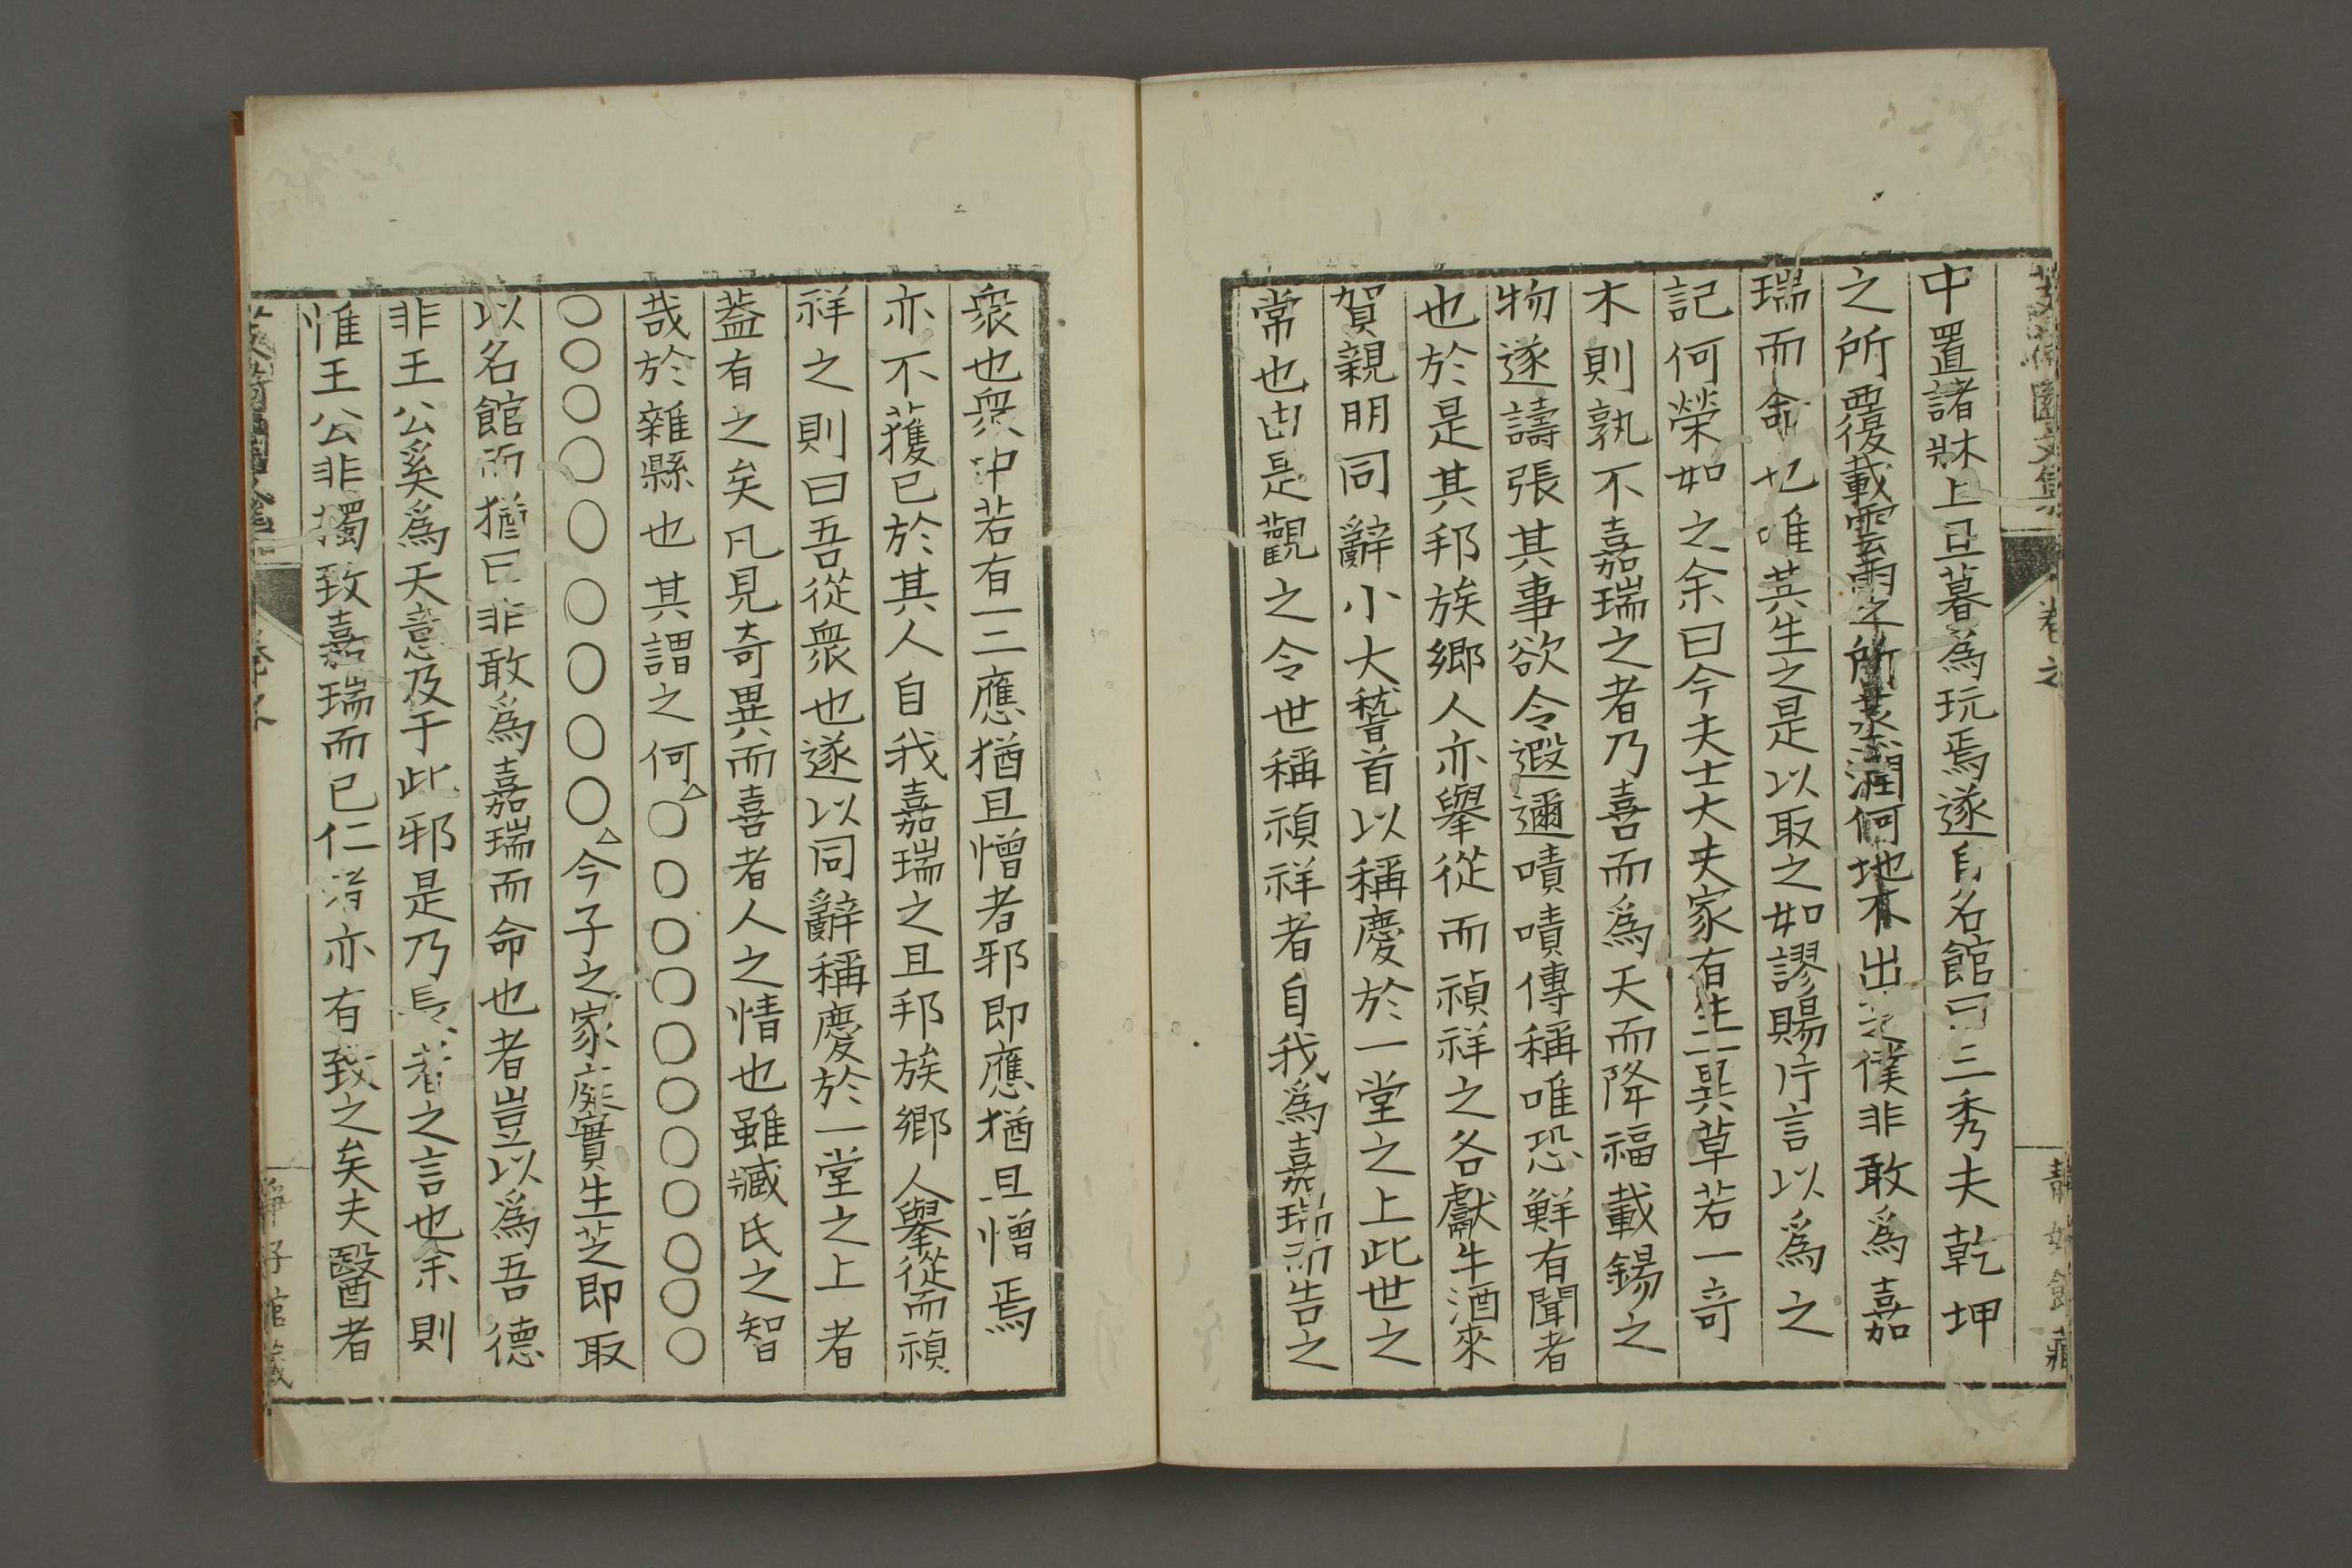 卷之
中置諸牀上旦暮為玩焉遂自名館曰三秀夫乾坤
之所覆載雲雨之所蒸潤何地不出芝僕非敢為嘉
瑞而命也唯其生之是以取之如謬賜片言以為之
記何榮如之余曰今夫士大夫家有生一異草若一奇
木則孰不嘉瑞之者乃喜而為天而降福載錫之
物遂譸張其事欲令遐邇嘖嘖傳稱唯恐鮮有聞者
也於是其邦族鄉人亦舉從而禎祥之各獻牛酒來
賀親朋同辭小大稽首以稱慶於一堂之上此世之
常也由是觀之令世稱禎祥者自我為嘉瑞而告之
衆也衆中若有一二應猶且憎者邪即應猶且憎焉
亦不獲已於其人自我嘉瑞之且邦族鄉人舉從而禎
祥之則曰吾從衆也遂以同辭稱慶於一堂之上者
葢有之矣凡見奇異而喜者人之情也雖臧氏之智
哉於雜縣也其謂之何△〇〇〇〇〇〇〇〇〇〇
〇〇〇〇〇〇〇〇〇△今子之家庭實生芝即取
以名館而猶曰非敢為嘉瑞而命也者豈以為吾德
非王公奚為天意及于此邪是乃長者之言也余則
惟王公非獨致嘉瑞而已仁者亦有致之矣夫醫者